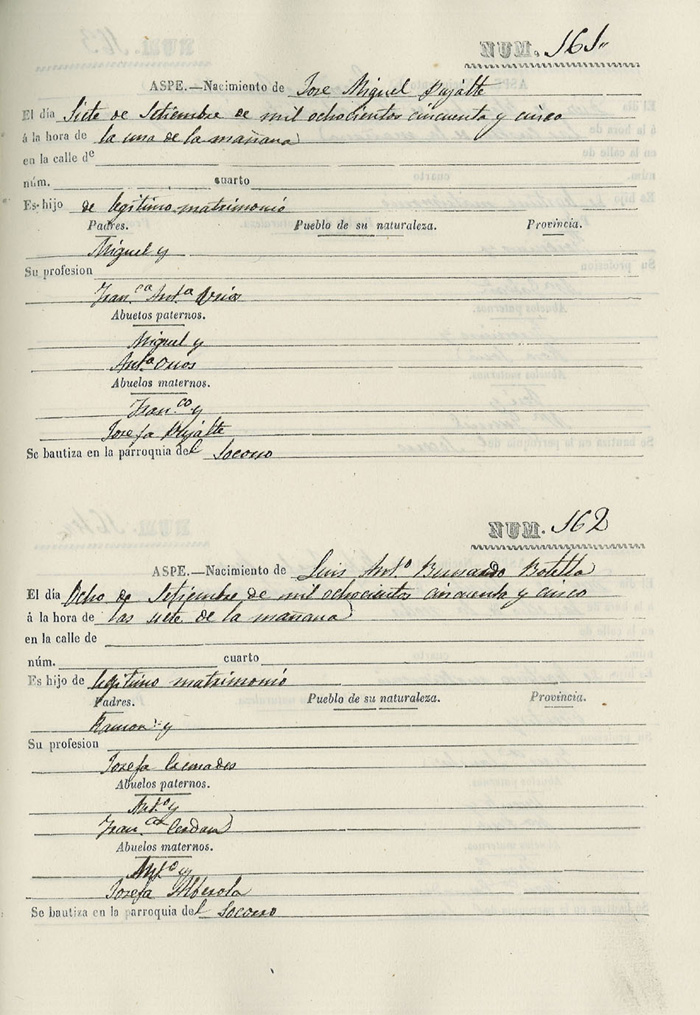 NUM. 161
ASPE.—Nacimiento de Jose Miguel Pujalte
El día Siete de Setiembre de mil ochocientos cincuenta y cinco
á la hora de la una de la mañana
en la calle de
núm. cuarto
Es hijo de legitimo matrimonio
Padres. Pueblo de su naturaleza. Provincia.
Miguel y
Su profesion
Fran.ca Ant.a
Abuelos paternos.
Miguel y
Ant.a
Abuelos maternos.
Fran.co y
Josefa Pujalte
Se bautiza en la parroquia del Socorro
NUM. 162
ASPE.—Nacimiento de Luis Ant.o Bernardo Botella
El día Ocho de Setiembre de mil ochocientos cincuenta y cinco
á la hora de las siete de la mañana
en la calle de
núm. cuarto
Es hijo de legitimo matrimonio
Padres. Pueblo de su naturaleza. Provincia.
Ramon y
Su profesion
Josefa Cremades
Abuelos paternos.
Ant.o y
Fran.ca Cerdan
Abuelos maternos.
Ant.o y
Josefa Alberola
Se bautiza en la parroquia del Socorro